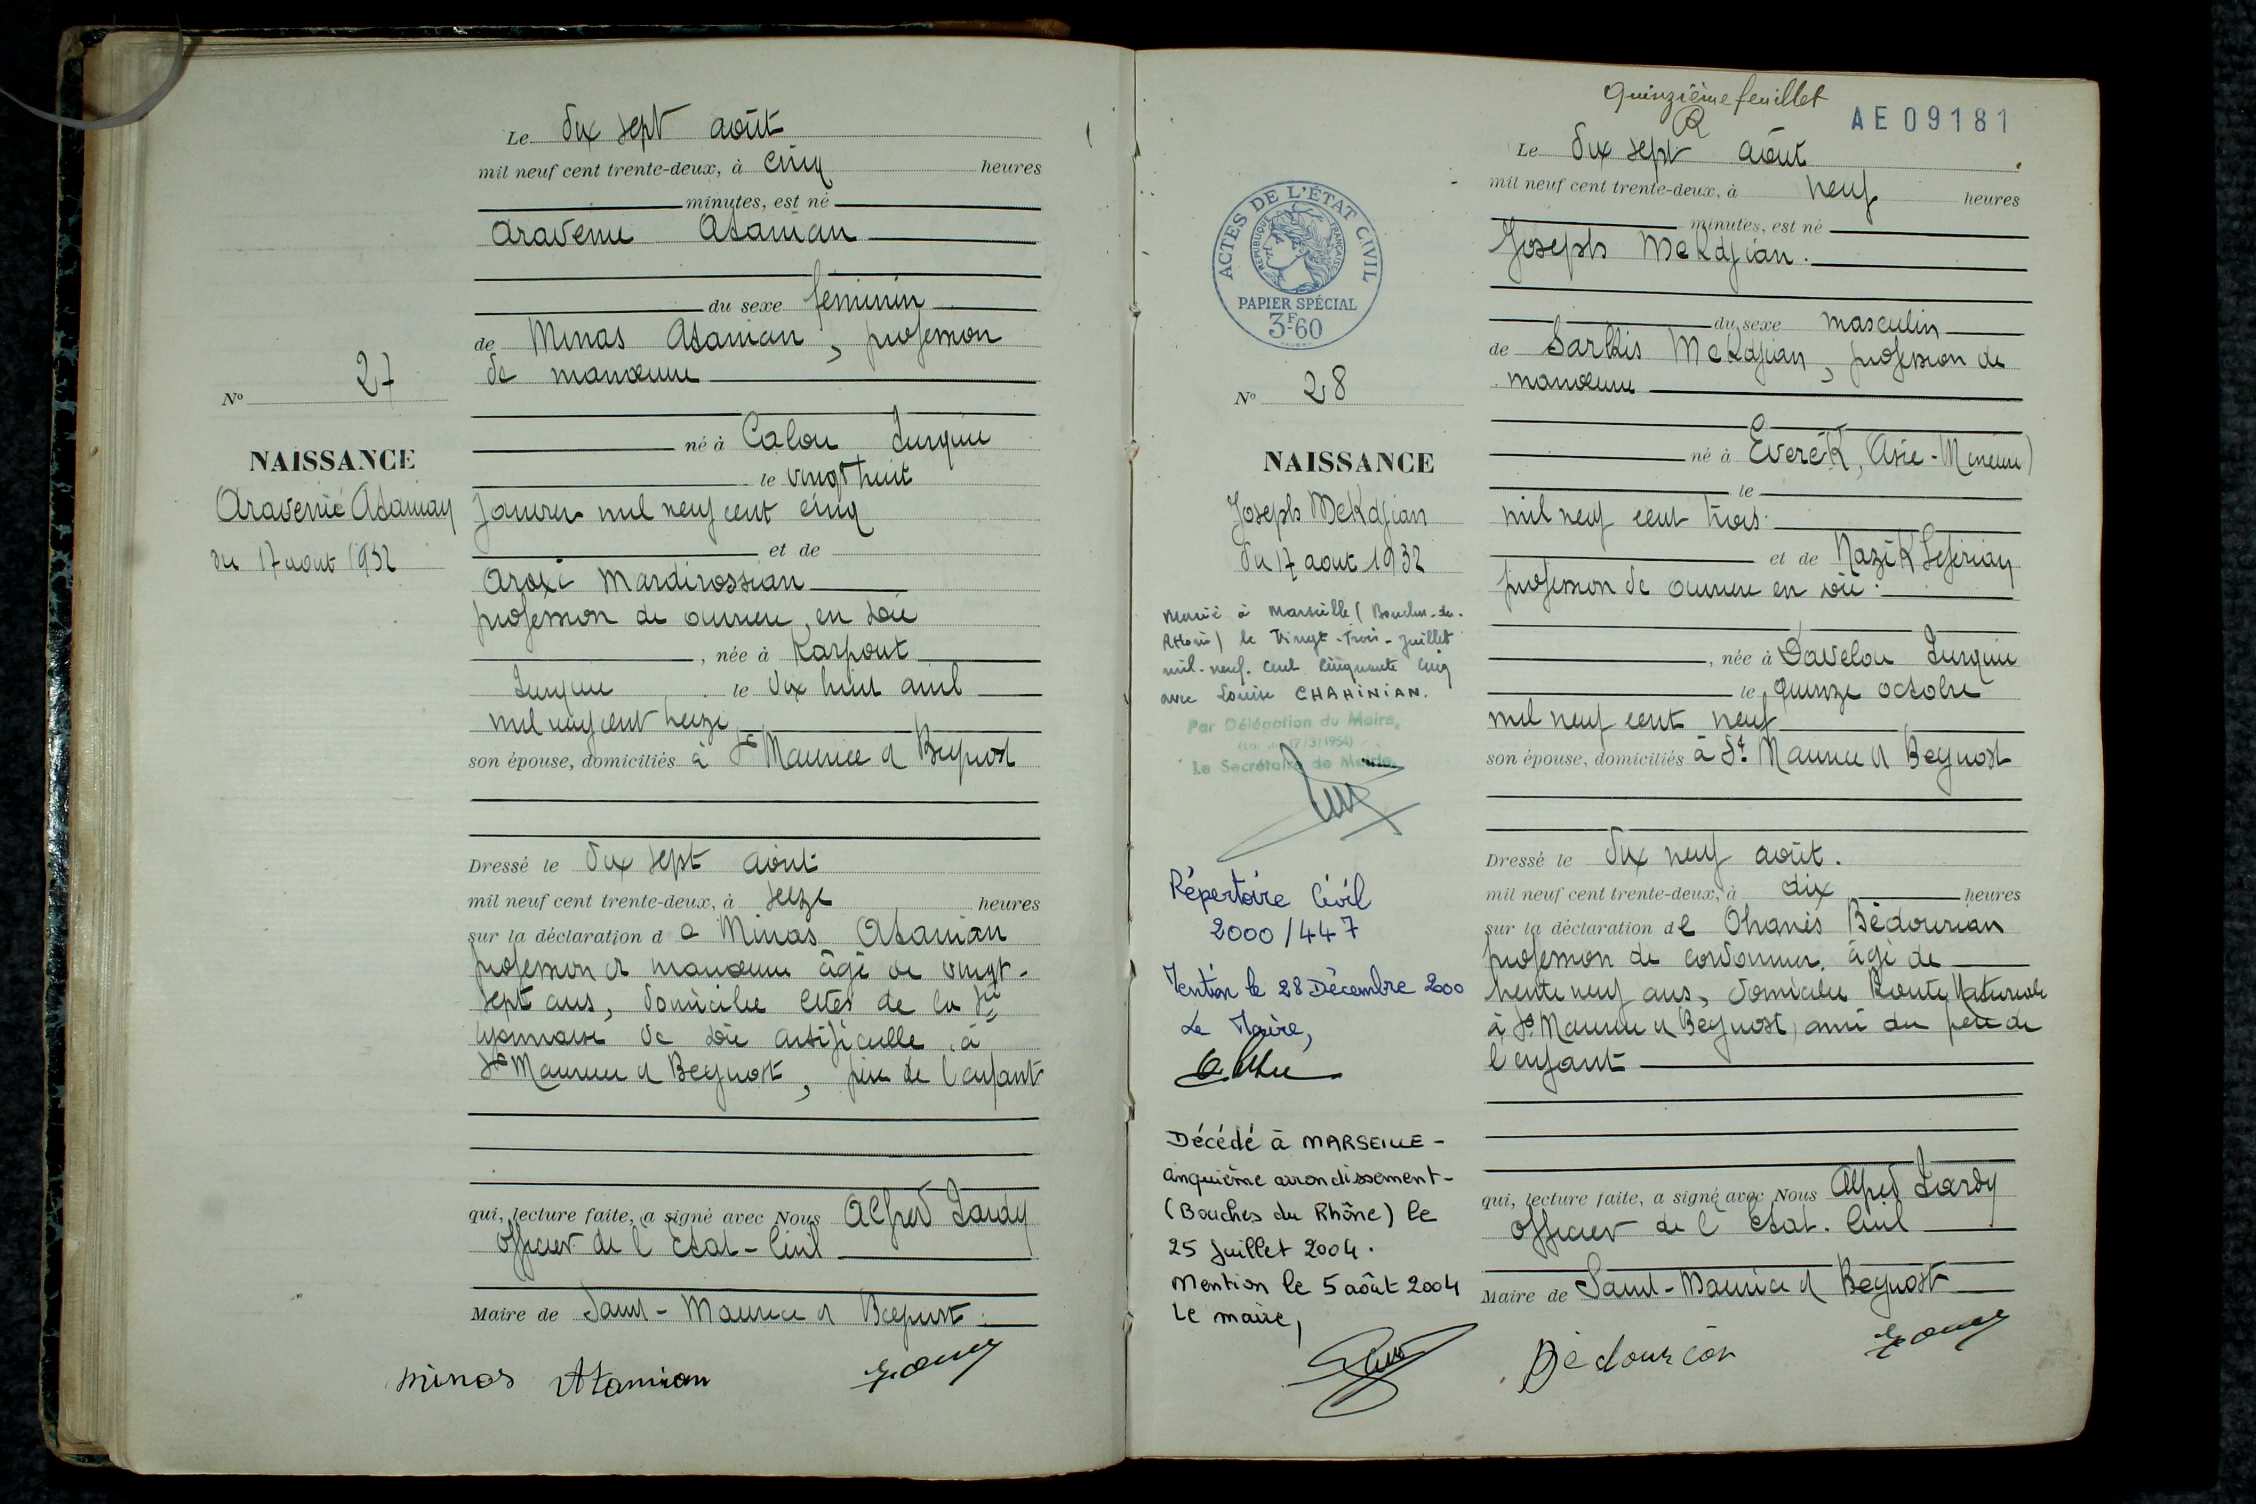 Le dix sept août
mil neuf cent trente-deux, à cinq heures
minutes, est né
Aravenie Atamian
du sexe féminin
de Minas Atamian, profession
de manœuvre
N° 27
né à Calou Turquie
NAISSANCE
le vingt huit
Aravenie Atamian
Janvier mil neuf cent cinq
et de
du 17 aout 1932
Aroxi Mardirossian
profession de ouvrière en soie
, née à Karpout
Turquie le dix huit avril
mil neuf cent treize
son épouse, domiciliés à St Maurice d Beynost
Dressé le dix sept août
mil neuf cent trente-deux, à seize heures
sur la déclaration de Minas Atamian
profession de manœuvre âgé de vingt-
sept ans, domicilié cités de la Sté
lyonnaise de soie artificielle, à
St Maurice d Beynost, père de l'enfant
qui, lecture faite, a signé avec Nous Alfred Lardy
officier de l'Etat-Civil
Maire de Saint-Maurice d Beynost.
Minas Atamian
Quinzième feuillet
AE09181
Le dix sept août
mil neuf cent trente-deux, à neuf heures
minutes, est né
Joseph Mekdjian.
ACTES DE L'ÉTAT CIVIL
RÉPUBLIQUE FRANÇAISE
PAPIER SPÉCIAL
3F60
du sexe masculin
de Sarkis Mekdjian, profession de
manœuvre
N° 28
né à Everek, (Asie-Mineure)
NAISSANCE
le
Joseph Mekdjian
mil neuf cent trois.
du 17 aout 1932
et de Nazik Seferian
profession de ouvrière en soie.
Marié à Marseille (Bouches-du-
Rhône) le Vingt-Trois-Juillet
mil-neuf-cent cinquante cinq
avec Louise CHAHINIAN.
Par Délégation du Maire,
(Loi du 17/3/1954)
Le Secrétaire de Mairie,
, née à Davelou Turquie
le quinze octobre
mil neuf cent neuf
son épouse, domiciliés à St Maurice d Beynost
Dressé le dix neuf août.
mil neuf cent trente-deux, à dix heures
sur la déclaration de Ohanès Bédourian
profession de cordonnier. âgé de
trente neuf ans, domicilié Route Nationale
à St Maurice d Beynost, ami du père de
l'enfant
Répertoire Civil
2000/447
Mention le 28 Décembre 2000
Le Maire,
Décédé à MARSEILLE -
cinquième arrondissement -
(Bouches du Rhône) le
25 juillet 2004.
Mention le 5 août 2004
Le maire,
qui, lecture faite, a signé avec Nous Alfred Lardy
officier de l'Etat-Civil
Maire de Saint-Maurice d Beynost